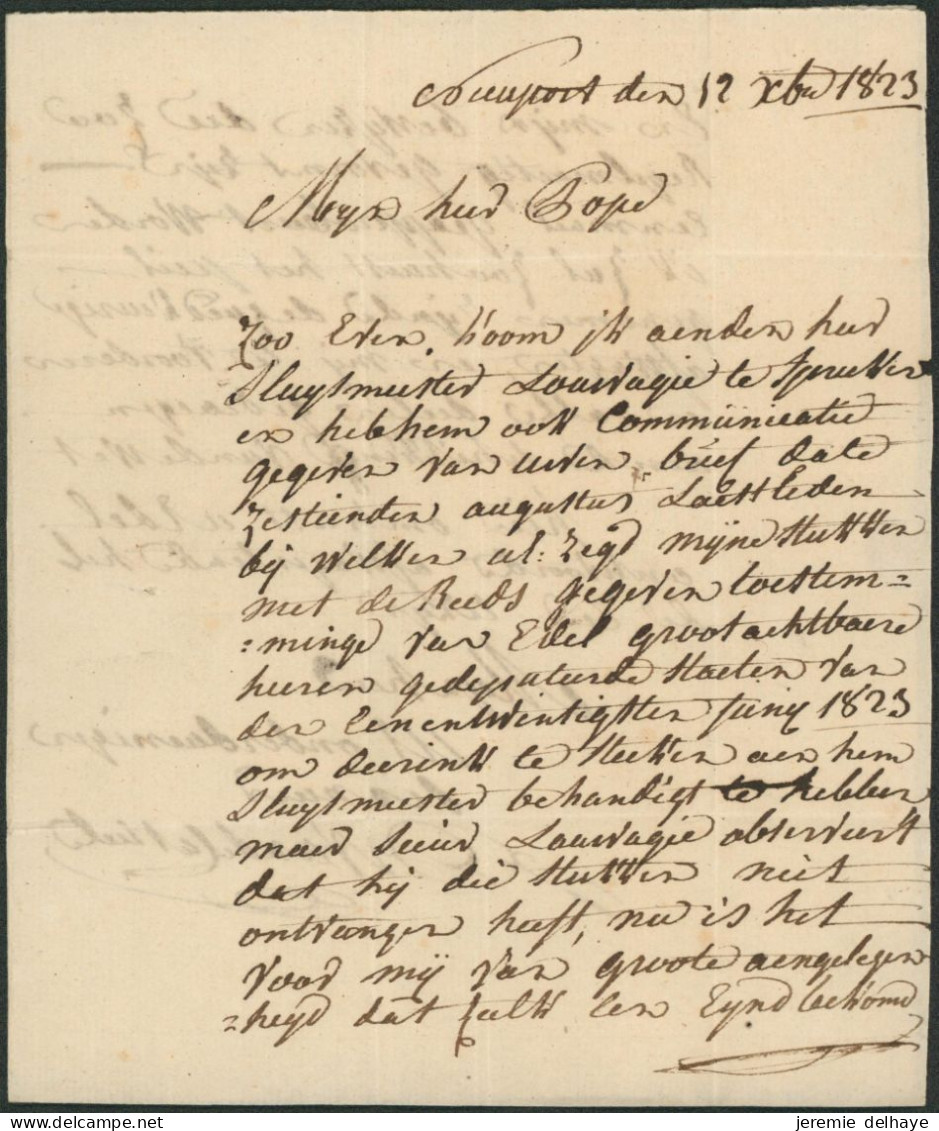 Nieuport den 12 xbre 1823
Myn heer Pope
Zoo Even koom jk aen den heer
Sluysmeester Lauwagie te spreken
en heb hem ook Communicatie
gegeven van uwen brief date
zestienden augustus Laestleden
bij welken ul: zegd mijne stukken
met de Reeds gegeven toestem=
=minge van Edel groot achtbaere
heeren gedeputeerde staeten van
den Eenentwintigsten Junij 1823
om deerink te steken aen hem
Sluysmeester behandigt te hebben
maer sieur Lauwagie observeert
dat hij die stukken niet
ontvangen heeft, nu is het
voor mij van groote aengelegen
=heyd dat zulk Een Eynd bekome
jeremie delhaye